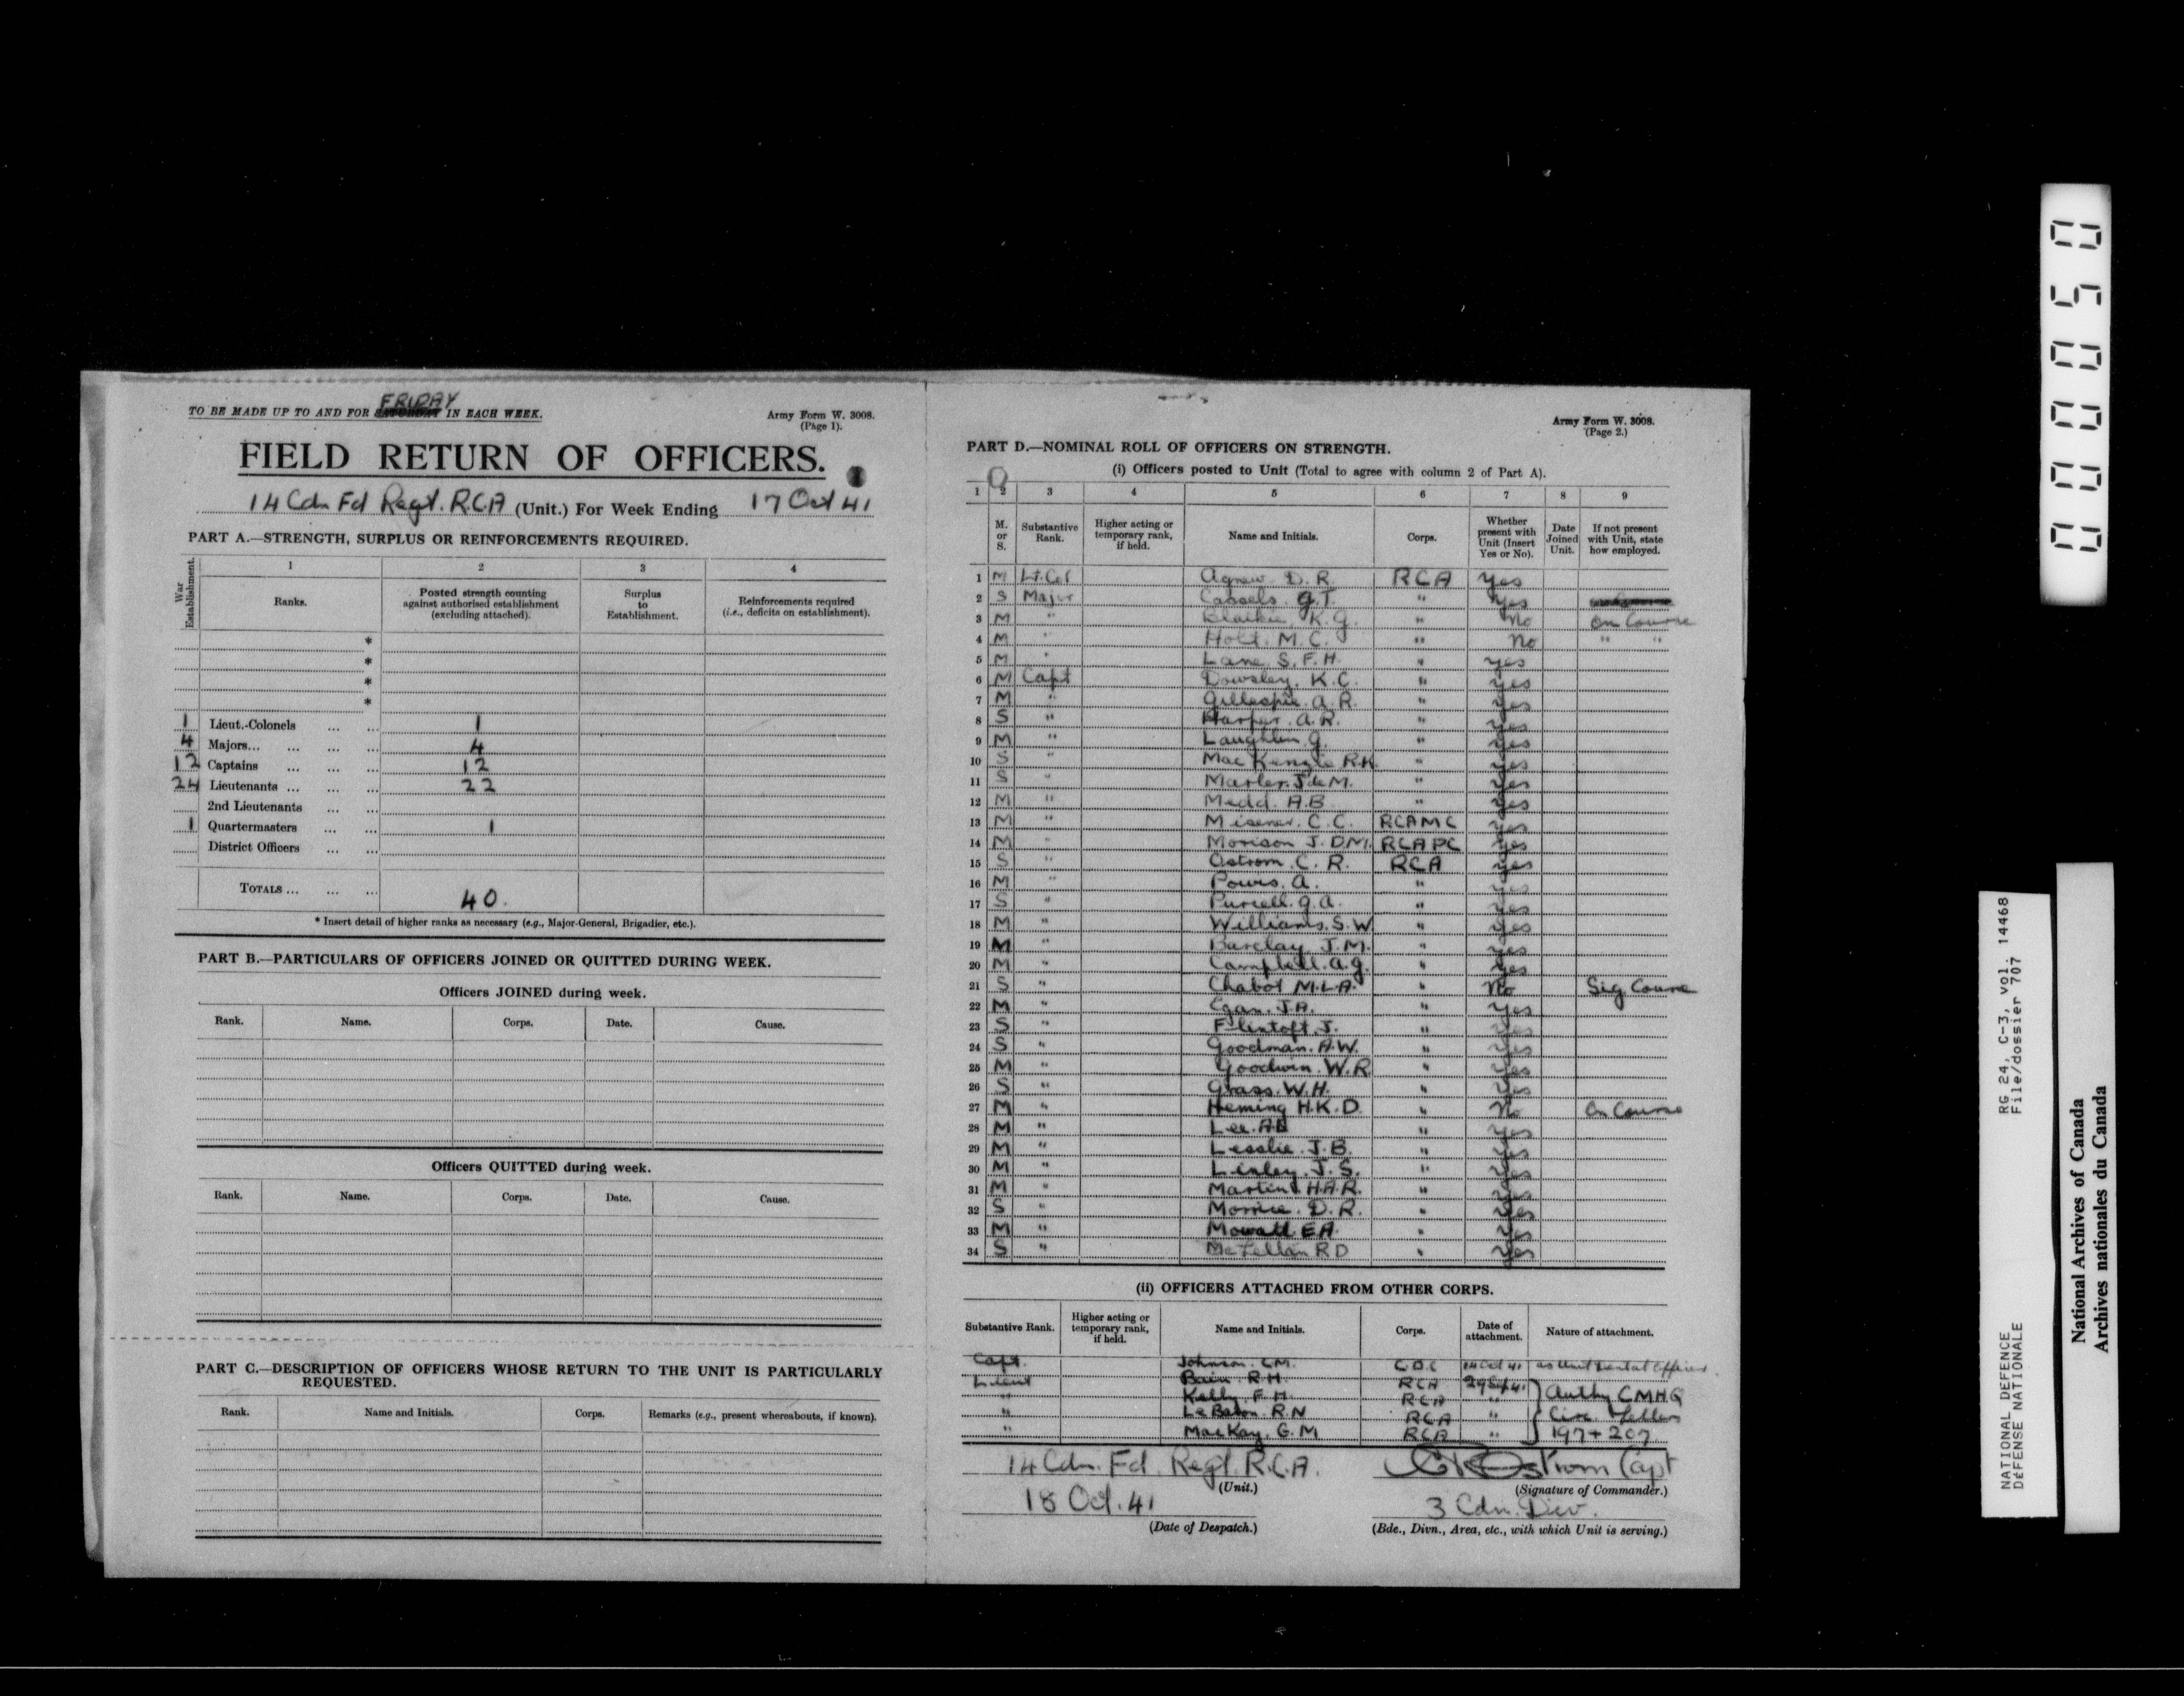 TO BE MADE UP TO AND FOR FRIDAY IN EACH WEEK.
Army Form W. 3008.
(Page 1).
FIELD RETURN OF OFFICERS.
14 Cdn Fd Regt. R.C.A (Unit.) For Week Ending 17 Oct 41
PART A.—STRENGTH, SURPLUS OR REINFORCEMENTS REQUIRED.
War Establishment.
1 2 3 4
Ranks.
Posted strength counting against authorised establishment (excluding attached).
Surplus to Establishment.
Reinforcements required (i.e., deficits on establishment).
*
*
*
*
1 Lieut.-Colonels ... ... 1
4 Majors... ... ... ... 4
12 Captains ... ... ... 12
24 Lieutenants ... ... ... 22
2nd Lieutenants ... ...
1 Quartermasters ... ... 1
District Officers ... ...
TOTALS ... ... ... 40.
* Insert detail of higher ranks as necessary (e.g., Major-General, Brigadier, etc.).
PART B.—PARTICULARS OF OFFICERS JOINED OR QUITTED DURING WEEK.
Officers JOINED during week.
Rank. Name. Corps. Date. Cause.
Officers QUITTED during week.
Rank. Name. Corps. Date. Cause.
PART C.—DESCRIPTION OF OFFICERS WHOSE RETURN TO THE UNIT IS PARTICULARLY
REQUESTED.
Rank. Name and Initials. Corps. Remarks (e.g., present whereabouts, if known).
Army Form W. 3008.
(Page 2.)
PART D.—NOMINAL ROLL OF OFFICERS ON STRENGTH.
(i) Officers posted to Unit (Total to agree with column 2 of Part A).
1 2 3 4 5 6 7 8 9
M. or S.
Substantive Rank.
Higher acting or temporary rank, if held.
Name and Initials.
Corps.
Whether present with Unit (Insert Yes or No).
Date Joined Unit.
If not present with Unit, state how employed.
1 M Lt. Col Agnew. D. R. RCA Yes
2 S Major Cassels. G.T. " Yes
3 M " Blaikie, K. G. " No On Course
4 M " Holt. M. C. " No " "
5 M " Lane S. F. H. " Yes
6 M Capt Dowsley, K.C. " Yes
7 M " Gillespie. A. R. " Yes
8 S " Harper. A. R. " Yes
9 M " Laughlin. G. " Yes
10 S " MacKenzie R.K. " Yes
11 S " Marler. J de M. " Yes
12 M " Medd. A.B. " Yes
13 M " Misener. C. C. RCAMC Yes
14 M " Morison J. D.M. RCAPC Yes
15 S " Ostrom. C. R. RCA Yes
16 M " Powis. A. " Yes
17 S " Purcell. G. A. " Yes
18 M " Williams. S. W. " Yes
19 M " Barclay J. M. " Yes
20 M " Campbell. A. G. " Yes
21 S " Chabot M.L.A. " No Sig Course
22 M " Egan. J.A. " Yes
23 S " Flintoft. J. " Yes
24 S " Goodman. A.W. " Yes
25 M " Goodwin. W.R. " Yes
26 S " Grass. W.H. " Yes
27 M " Heming H.K.D. " No On Course
28 M " Lee. A.B " Yes
29 M " Lesslie. J. B. " Yes
30 M " Linley. J. S. " Yes
31 M " Martin H.A.R. " Yes
32 S " Morrice. D. R. " Yes
33 M " Mowatt. E A. " Yes
34 S " McLellan R D " Yes
(ii) OFFICERS ATTACHED FROM OTHER CORPS.
Substantive Rank.
Higher acting or temporary rank, if held.
Name and Initials.
Corps.
Date of attachment.
Nature of attachment.
Capt. Johnson. C.M. C.D.C 14 Oct 41 as Unit Dental Officer
Lieut Bain. R.H. RCA 29 Sep 41
" Kelly. F. H. RCA " Authy CMHQ
" LeBaron. R. N RCA " Circ. letters
" MacKay. G. M RCA " 197 + 207
14 Cdn. Fd. Regt. R.C.A.
(Unit.)
C R Ostrom Capt
(Signature of Commander.)
18 Oct. 41
(Date of Despatch.)
3 Cdn. Div.
(Bde., Divn., Area, etc., with which Unit is serving.)
000050
RG 24, C-3, vol. 14468
File/dossier 707
NATIONAL DEFENCE
DÉFENSE NATIONALE
National Archives of Canada
Archives nationales du Canada